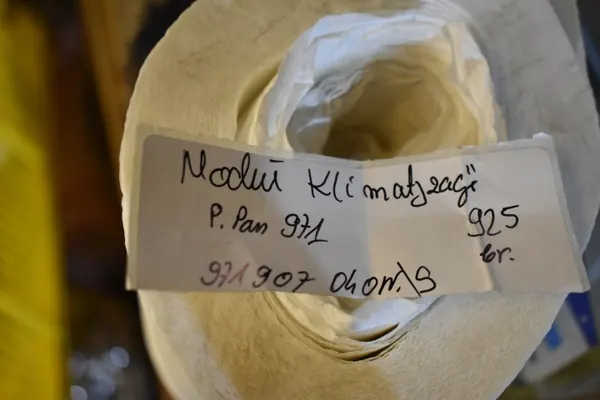 Moduł Klimatyzacji
P. Pan 971 925
br.
971 907 040N.\S